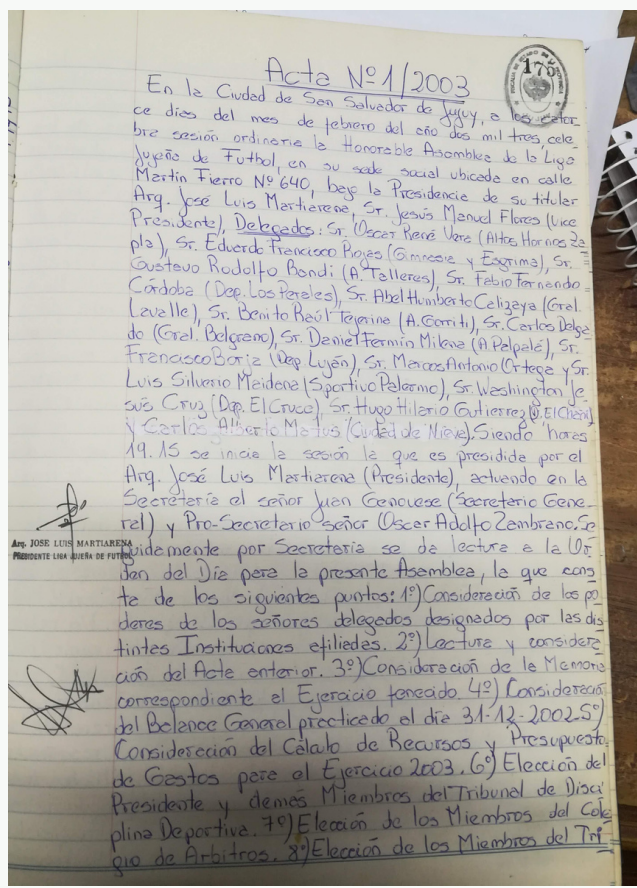 Acta Nº1/2003
175
En la Ciudad de San Salvador de Jujuy, a los cator
ce días del mes de febrero del año dos mil tres, cele
bra sesión ordinaria la Honorable Asamblea de la Liga
Jujeña de Futbol, en su sede social ubicada en calle
Martín Fierro Nº 640, bajo la Presidencia de su titular
Arq. José Luis Martiarena, Sr. Jesús Manuel Flores (Vice
Presidente), Delegados: Sr. Oscar René Vera (Altos Hornos Za
pla), Sr. Eduardo Francisco Rojas (Gimnasia y Esgrima), Sr.
Gustavo Rodolfo Bandi (A. Talleres), Sr. Fabio Fernando
Córdoba (Dep. Los Perales), Sr. Abel Humberto Calizaya (Gral.
Lavalle), Sr. Benito Raúl Tejerina (A. Gorriti), Sr. Carlos Delga
do (Gral. Belgrano), Sr. Daniel Fermín Milena (A. Palpalá), Sr.
Francisco Borja (Dep. Luján), Sr. Marcos Antonio Ortega y Sr.
Luis Silverio Maidana (Sportivo Palermo), Sr. Washington Je
sús Cruz (Dep. El Cruce), Sr. Hugo Hilario Gutierrez
y Carlos Alberto Matus (Ciudad de Nieva). Siendo horas
19.15 se inicia la sesión la que es presidida por el
Arq. José Luis Martiarena (Presidente), actuando en la
Secretaría el señor Juan Genovese (Secretario Gene
ral) y Pro-Secretario señor Oscar Adolfo Zambrano. Se
Arq. JOSE LUIS MARTIARENA
PRESIDENTE LIGA JUJEÑA DE FUTBOL
guidamente por Secretaría se da lectura a la Or
den del Día para la presente Asamblea, la que cons
ta de los siguientes puntos: 1º) Consideración de los po
deres de los señores delegados designados por las dis
tintas Instituciones afiliadas. 2º) Lectura y considera
ción del Acta anterior. 3º) Consideración de la Memoria
correspondiente al Ejercicio fenecido. 4º) Consideración
del Balance General practicado al día 31-12-2002. 5º)
Consideración del Cálculo de Recursos y Presupuesto
de Gastos para el Ejercicio 2003. 6º) Elección del
Presidente y demás Miembros del Tribunal de Disci
plina Deportiva. 7º) Elección de los Miembros del Cole
gio de Arbitros. 8º) Elección de los Miembros del Tri